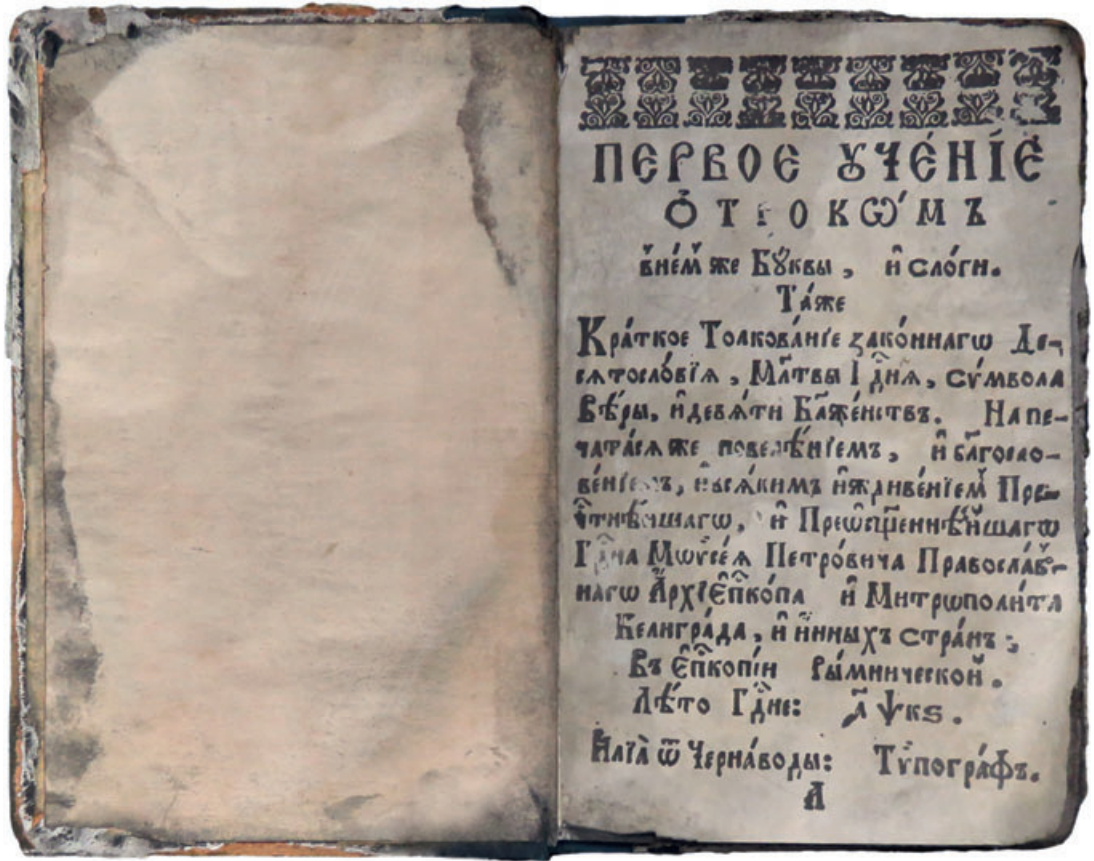 ПЕРВОЕ ᲈЧЕ́НЇЕ
Ѻ҆ТРОКѠ́МЪ
в̾не́м̾ же Бꙋ́квы, и҆ сло́ги.
Та́же
Кра́ткое Толкова́нїе зако́ннагѡ Де-
сѧтосло́вїѧ, Мл҃твы Гдⷭ҇нѧ, сѵ́мвола
Вѣ́ры, и҆ девѧ́ти Бл҃же́нствъ. Напе-
чата́сѧ же повелѣ́нїемъ, и҆ бл҃госло-
ве́нїемъ, и҆ всѧ́кимъ и҆ждиве́нїем̾ Пре-
чⷭ҇тнѣ́йшагѡ, и҆ Преѡ҆сщ҃еннѣ́йшагѡ
Гдⷭ҇ина Мѡѷсе́ѧ Петро́вича Правосла́в-
нагѡ А҆рхїє҆пⷭ҇ко́па и҆ Митрѡполи́та
Белигра́да, и҆ и҆́нныхъ стра́нъ;
Въ Є҆пⷭ҇копі́и Ры́мнической.
Лѣ́то Гдⷭ҇не: ҂а҃ ѱкѕ.
И҆лїа̀ ѿ Черна́воды: Тѷпогра́фъ.
А